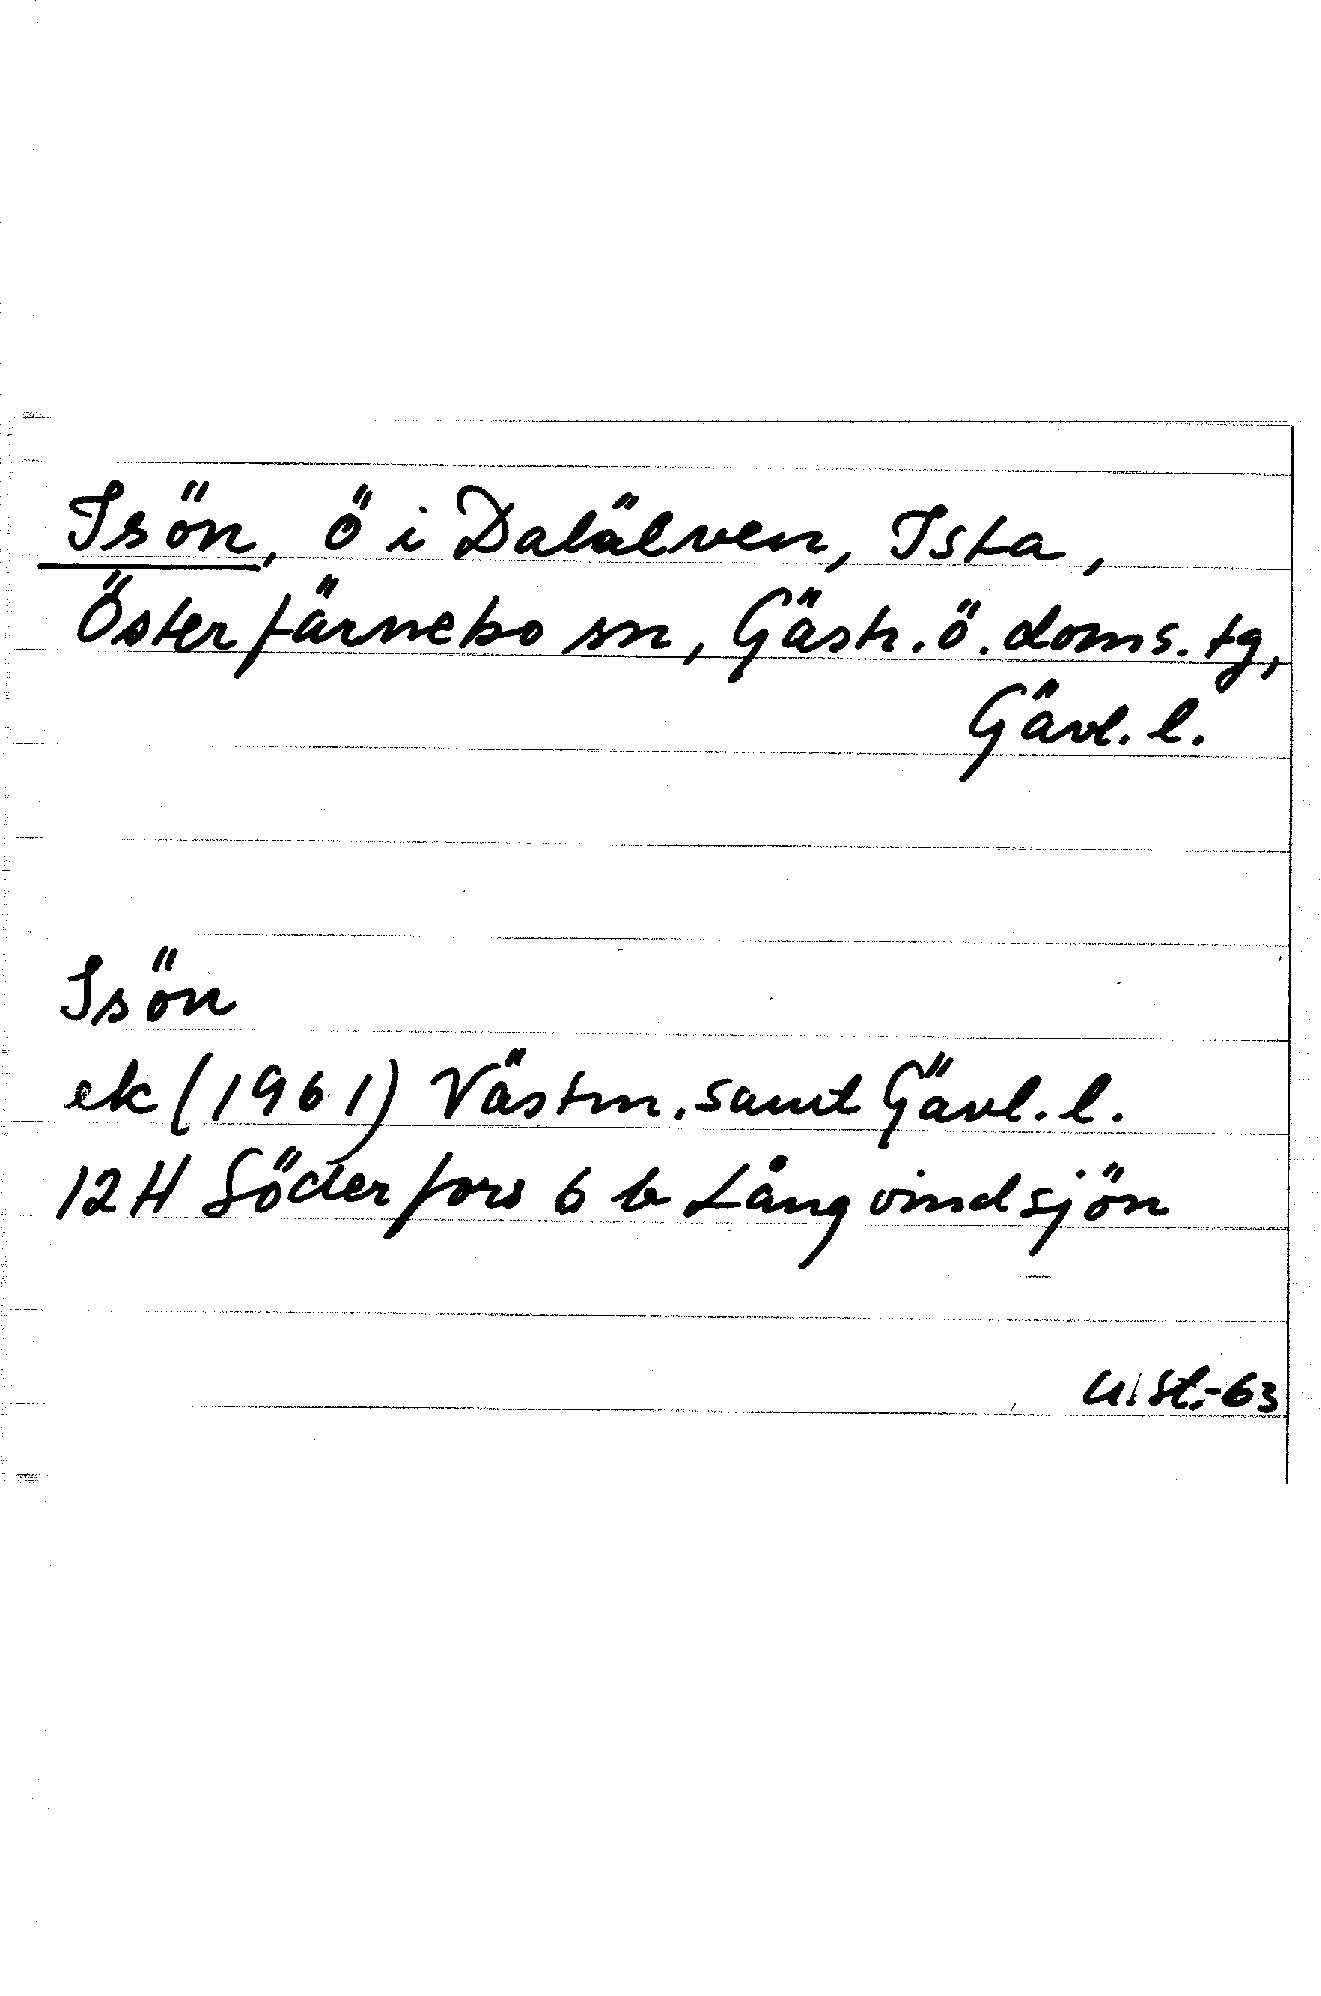 Isön, ö i Dalälven, Ista,
Österfärnebo sn, Gästr. ö. doms. tg,
Gävl. l.
Isön
ek (1961) Västm. samt Gävl. l.
12 H Söderfors 6 b Långvindsjön
U. St. -63